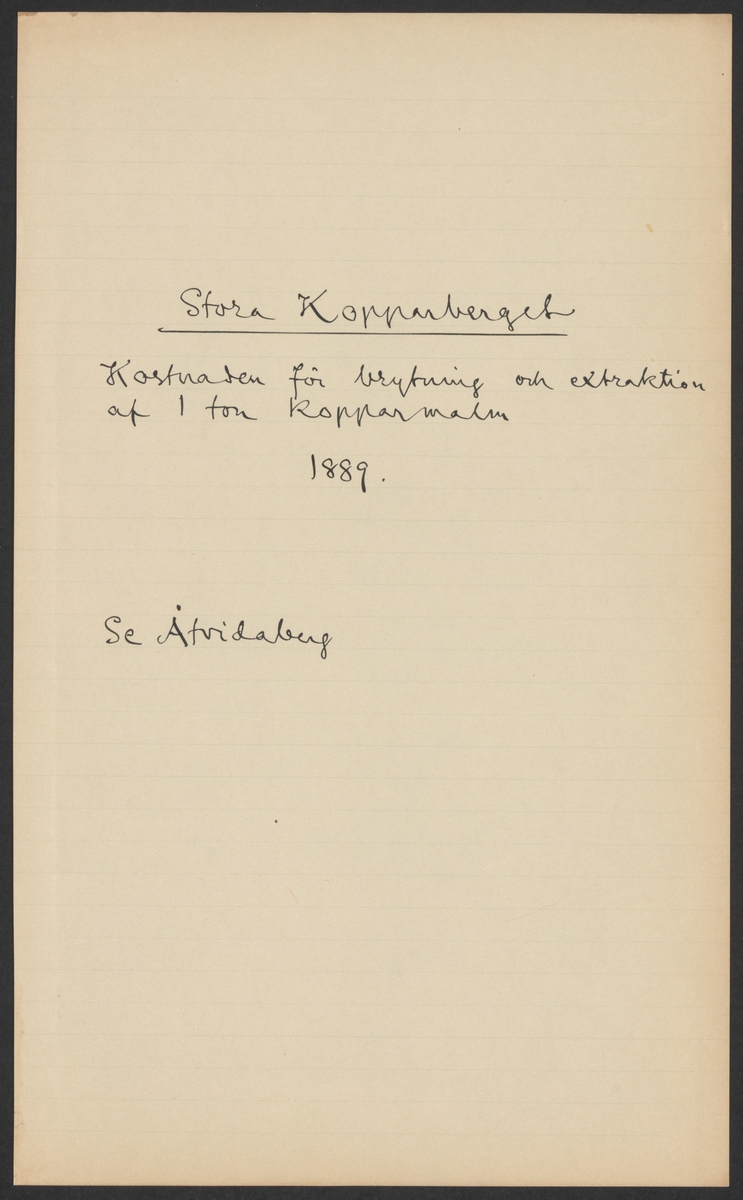 Stora Kopparberget
Kostnaden för brytning och extraktion
af 1 ton kopparmalm
1889.
Se Åtvidaberg